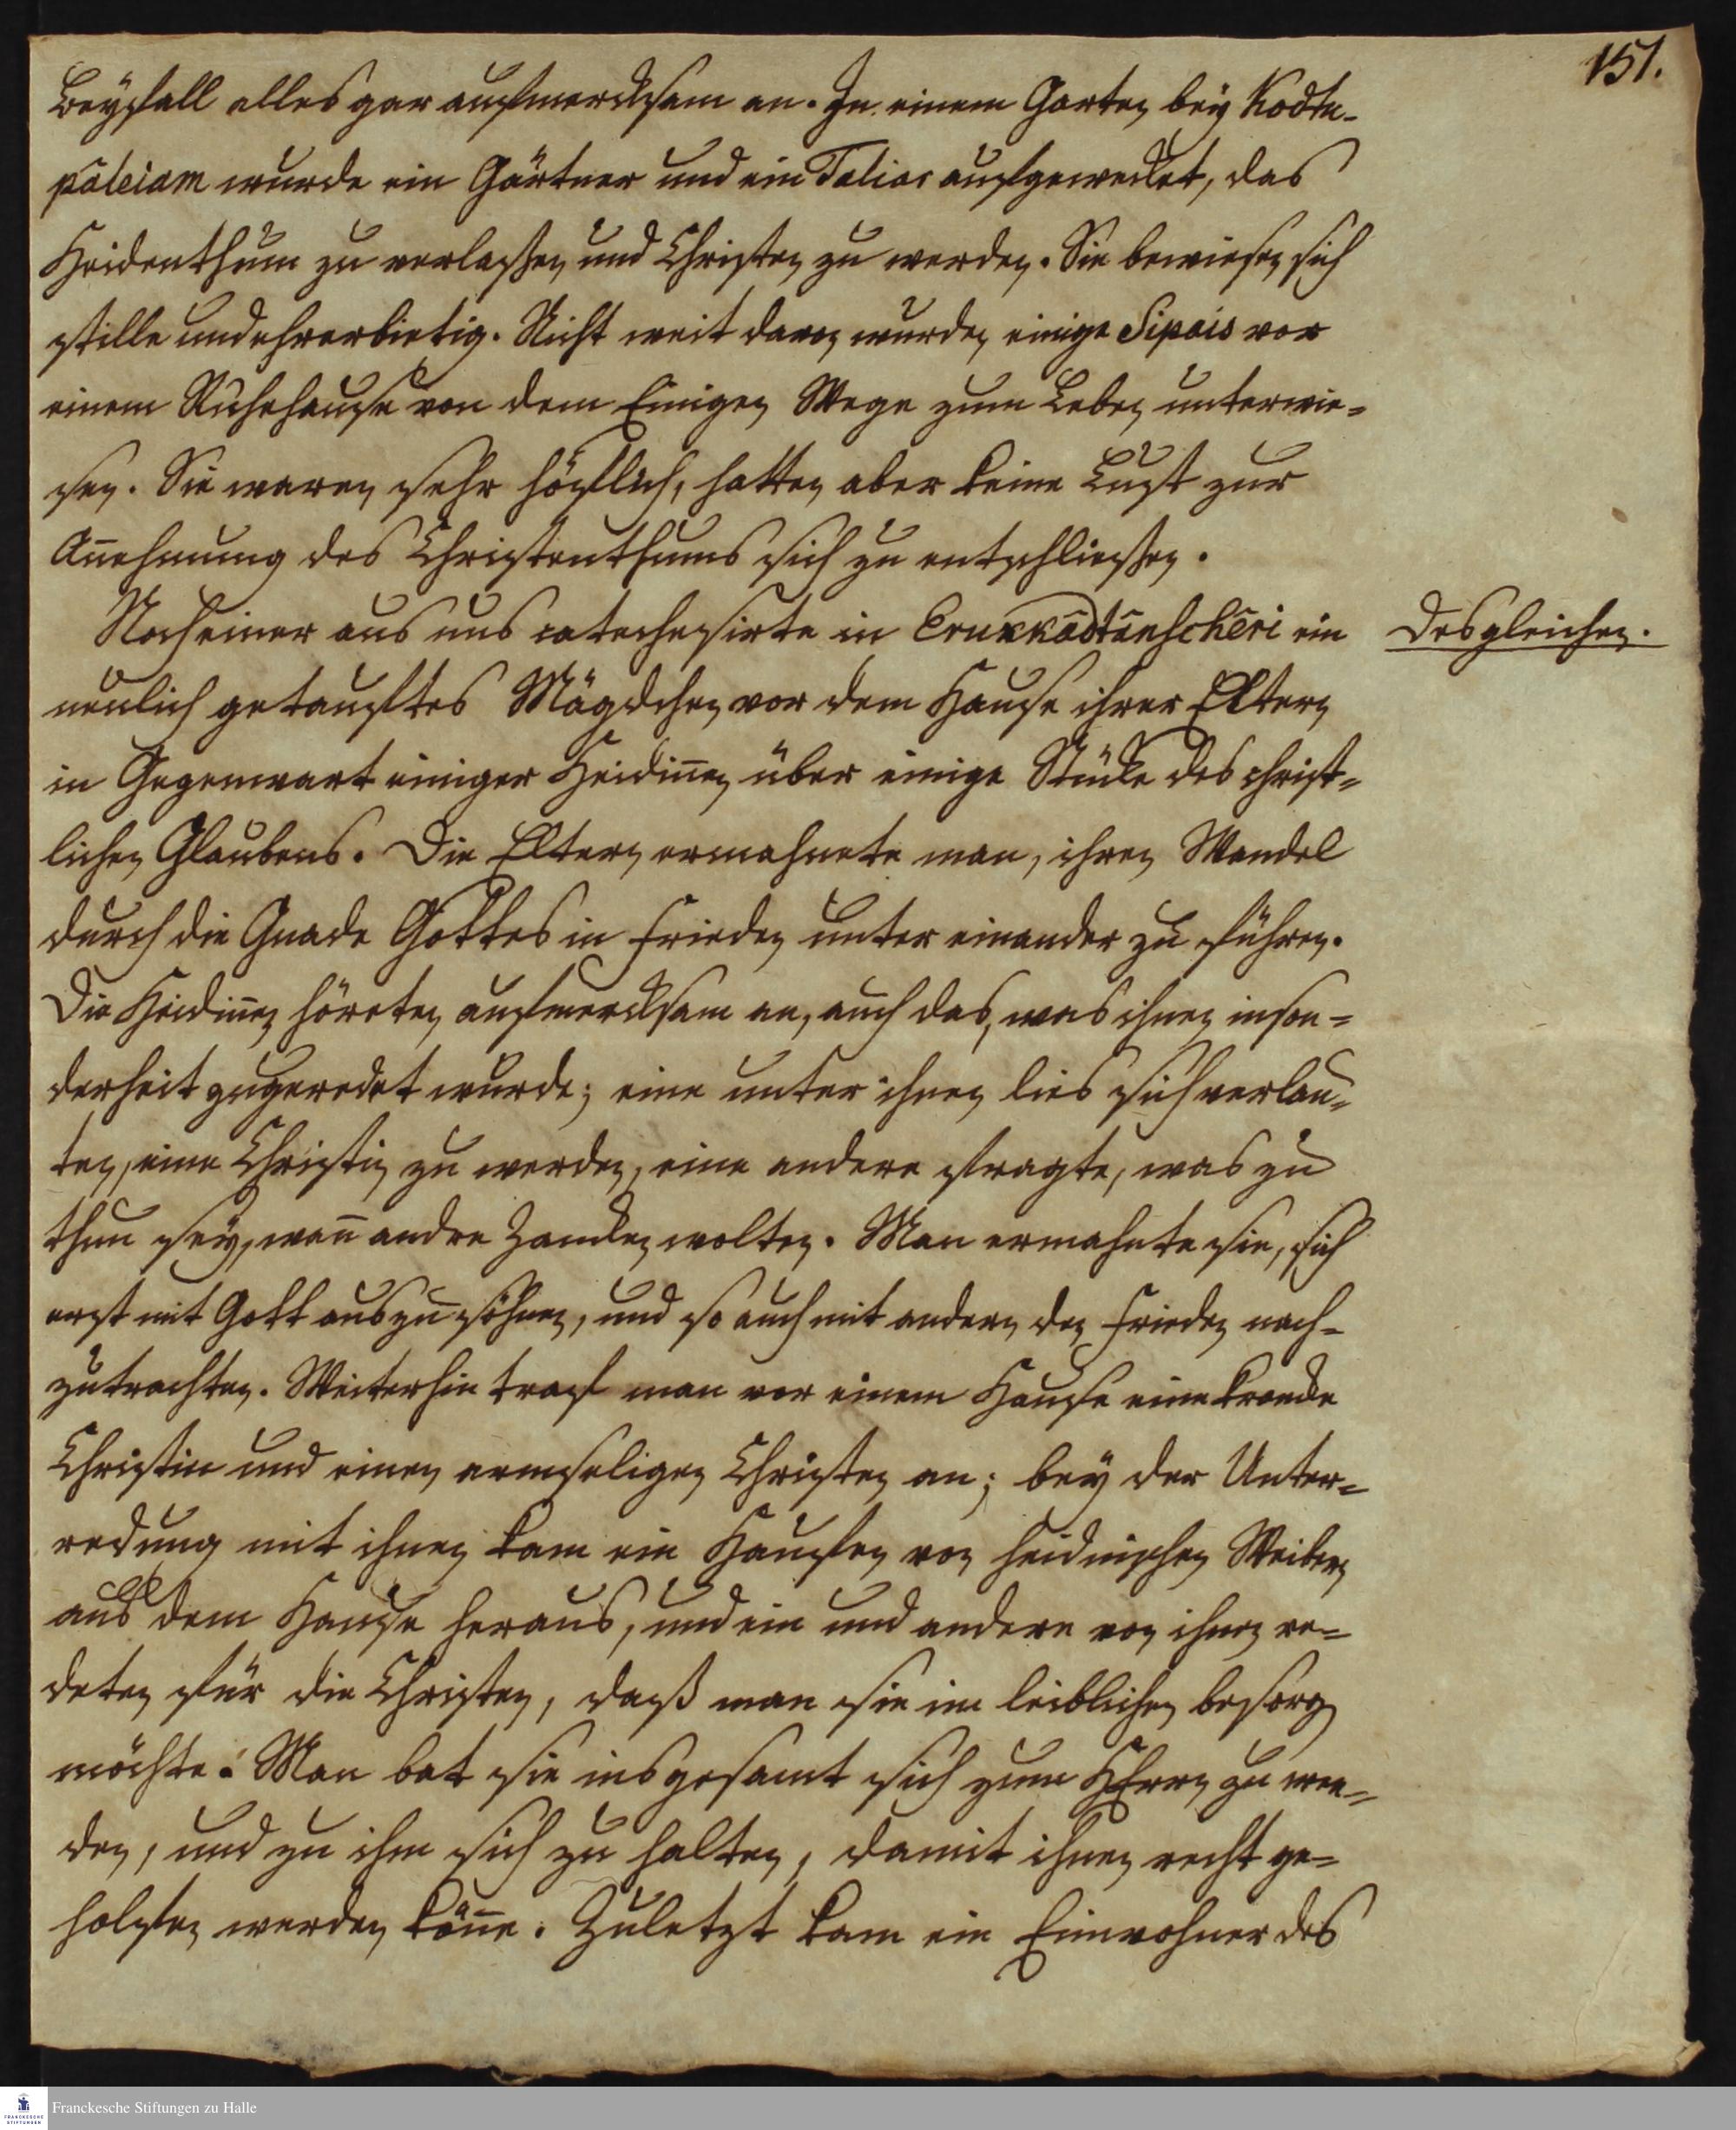 151.
Beyfall alles gar aufmercksam an. In einem Garten bey Kodtu-
pâleiam wurde ein Gärtner und ein Taliar aufgewecket, das
Heidenthum zu verlaßen und Christen zu werden. Sie bewiesen sich
stille und ehrerbietig. Nicht weit davon wurden einige Sipais vor
einem Ruhehause von dem Einigen Wege zum Leben unterwie=
sen. Sie waren sehr höflich, hatten aber keine Lust zur
Añehmung des Christenthums sich zu entschließen.
Noch einer aus uns catechesirte in Erukkâdtânschêri ein
Desgleichen.
neulich getauftes Mägdchen vor dem Hause ihrer Eltern
in Gegenwart einiger Heidiñen über einige Stücke des christ=
lichen Glaubens. Die Eltern ermahnete man, ihren Wandel
durch die Gnade Gottes in Frieden unter einander zu führen.
Die Heidiñen höreten aufmercksam an, auch das, was ihnen inson=
derheit zugeredet wurde; eine unter ihnen lies sich verlau=
ten, eine Christin zu werden, eine andere fragte, was zu
thun sey, wañ andre zancken wolten. Man ermahnte sie, sich
erst mit Gott auszusöhnen, und so auch mit andern den Frieden nach=
zutrachten. Weiterhin traf man vor einem Hause eine krancke
Christin und einen armseligen Christen an; bey der Unter=
redung mit ihnen kam ein Haufen von heidnischen Weibern
aus dem Hause heraus, und ein und andere von ihnen re=
deten für die Christen, daß man sie im leiblichen besorgen
möchte. Man bat sie insgesamt sich zum HErrn zu wen=
den, und zu ihm sich zu halten, damit ihnen recht ge=
holfen werden köñe. Zuletzt kam ein Einwohner des
FRANCKESCHE STIFTUNGEN
Franckesche Stiftungen zu Halle